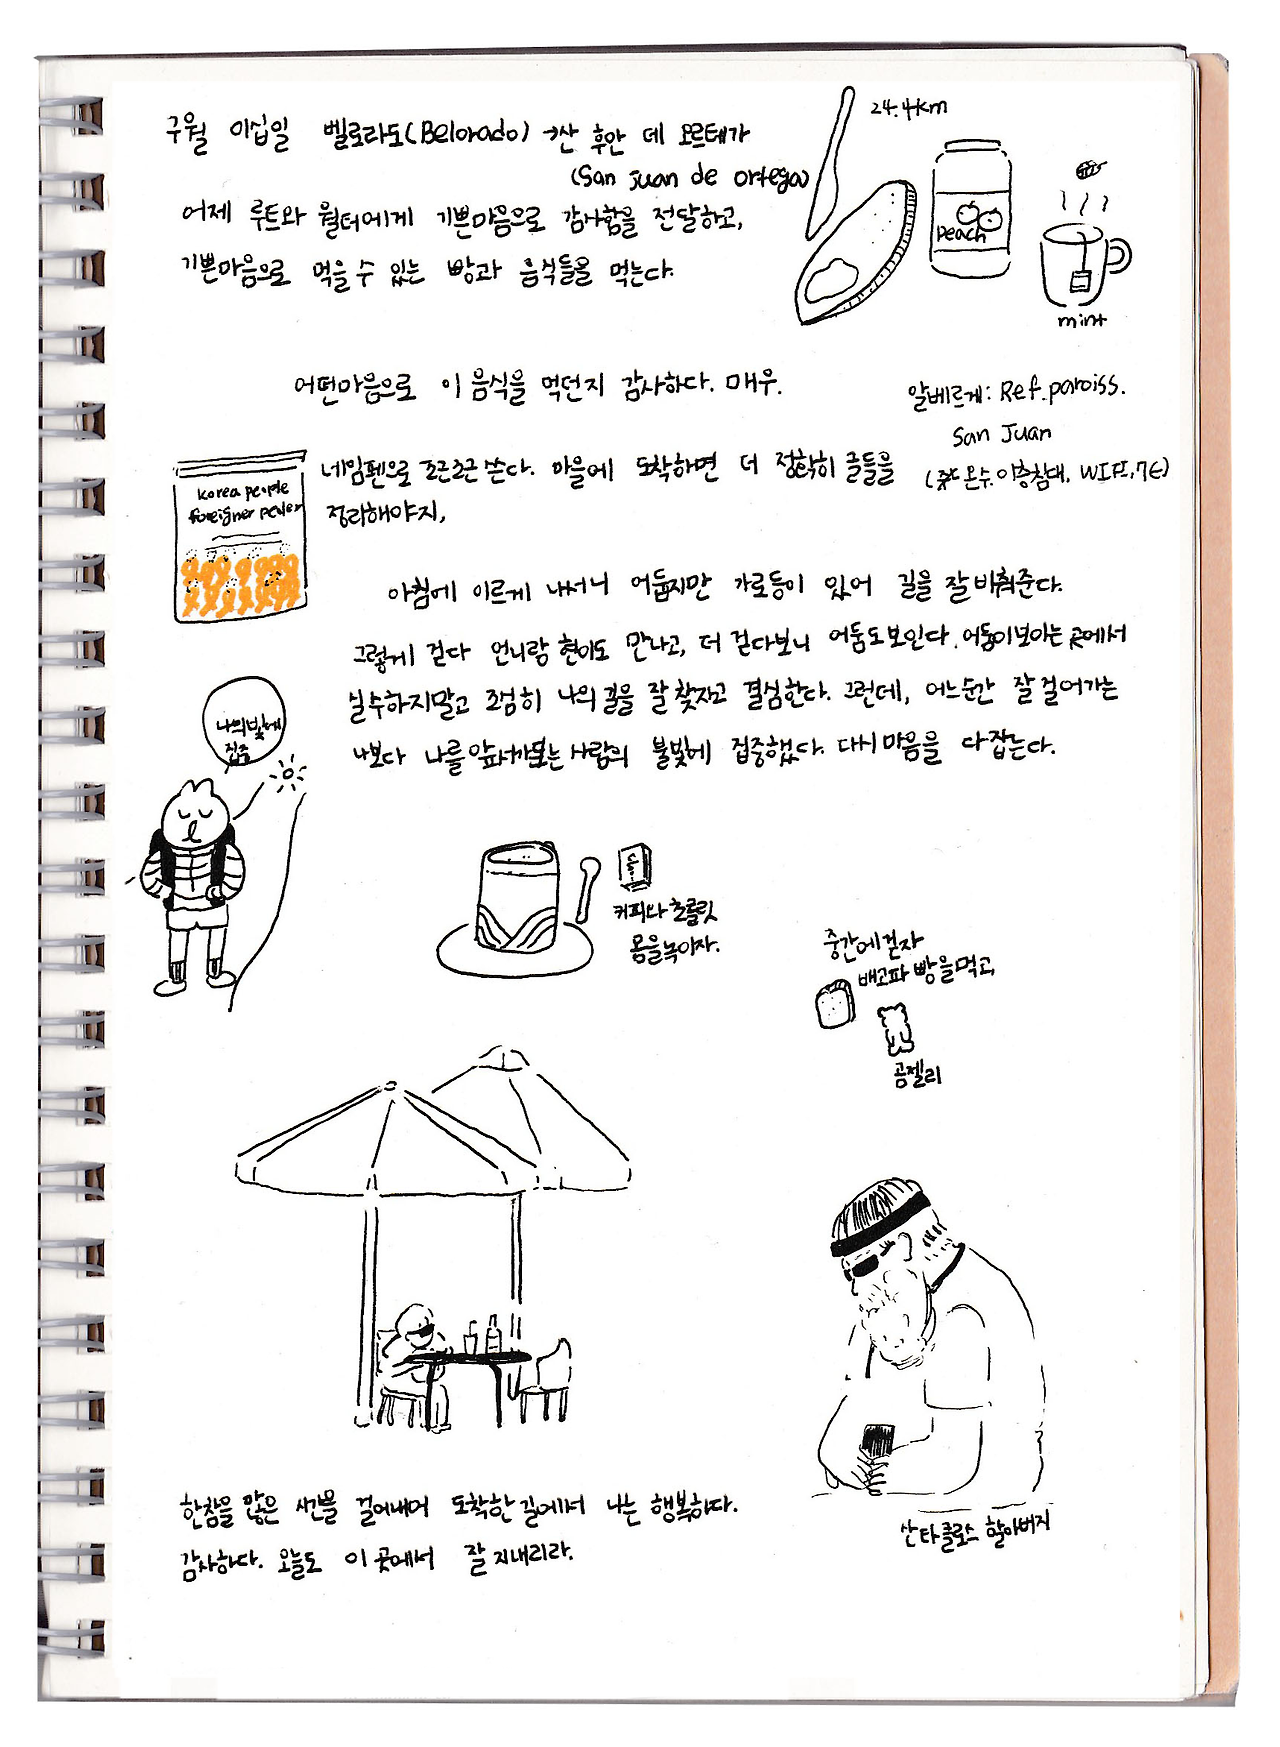 구월 이십일 벨로라도(Belorado) →산 후안 데 오르테가
(San Juan de ortega)
24.4km
어제 루트와 월터에게 기쁜마음으로 감사함을 전달하고,
기쁜마음으로 먹을 수 있는 빵과 음식들을 먹는다.
peach
mint
어떤마음으로 이 음식을 먹던지 감사하다. 매우.
알베르게: Ref.paroiss.
San Juan
온수, 이층침대, WIFI, 7€)
네임펜으로 조근조근 쓴다. 마을에 도착하면 더 정확히 글들을
정리해야지,
korea people
foreigner people
아침에 이르게 나서니 어둡지만 가로등이 있어 길을 잘 비춰준다.
그렇게 걷다 언니랑 현이도 만나고, 더 걷다보니 어둠도보인다. 어둠이보이는 곳에서
실수하지말고 조심히 나의 길을 잘 찾자고 결심한다. 그런데, 어느순간 잘 걸어가는
나보다 나를 사람의 불빛에 집중했다. 다시 마음을 다잡는다.
나의빛에
집중
커피와 초콜릿
몸을녹이자.
중간에 걷자
배고파 빵을 먹고,
곰젤리
산타클로스 할아버지
한참을 많은 시간을 걸어내어 도착한 길에서 나는 행복하다.
감사하다. 오늘도 이 곳에서 잘 지내리라.